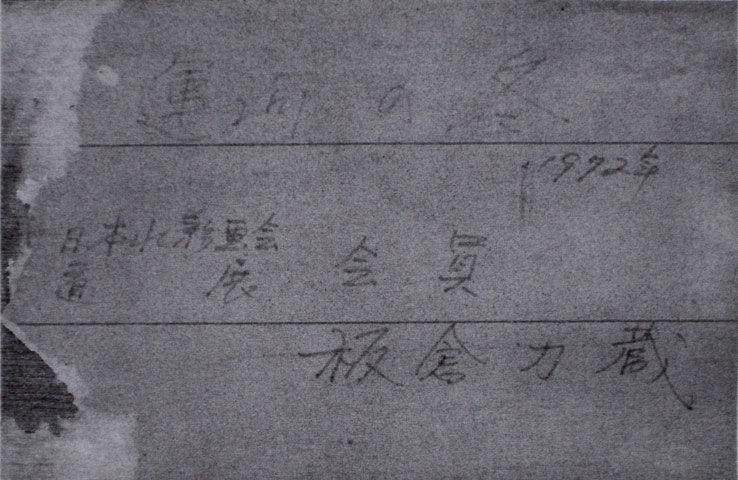 運河の
1972年
日本水彩画会
道展 会員
板倉力蔵